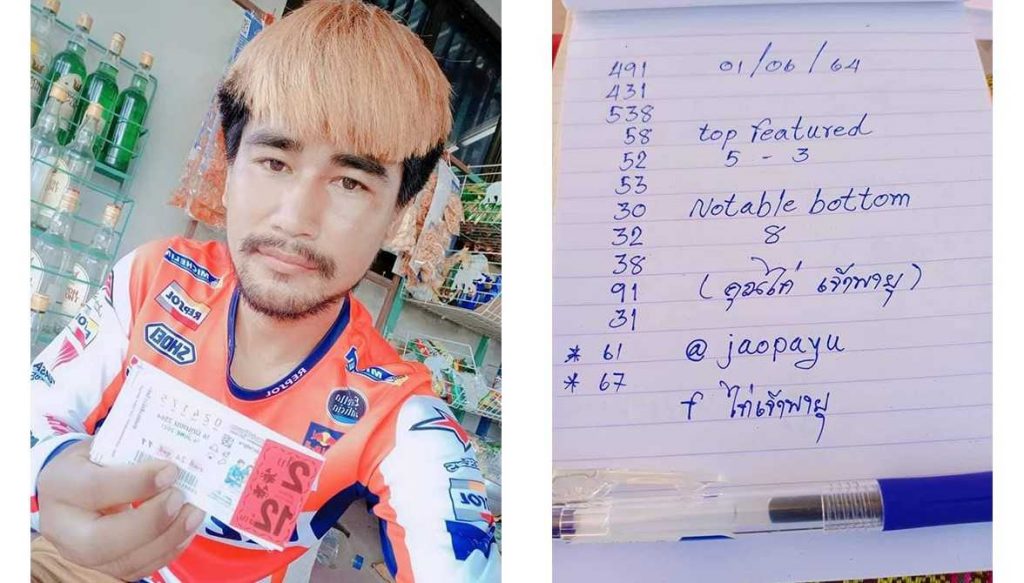 MICHELIN
REPSOL
SHOEI
REPSOL
Red Bull
024175
12
01/06/64
491
431
538
58
52
53
30
32
38
91
31
* 61
* 67
top featured
5 - 3
Notable bottom
8
(คุณไก่ เจ้าพายุ)
@ jaopayu
f ไก่เจ้าพายุ